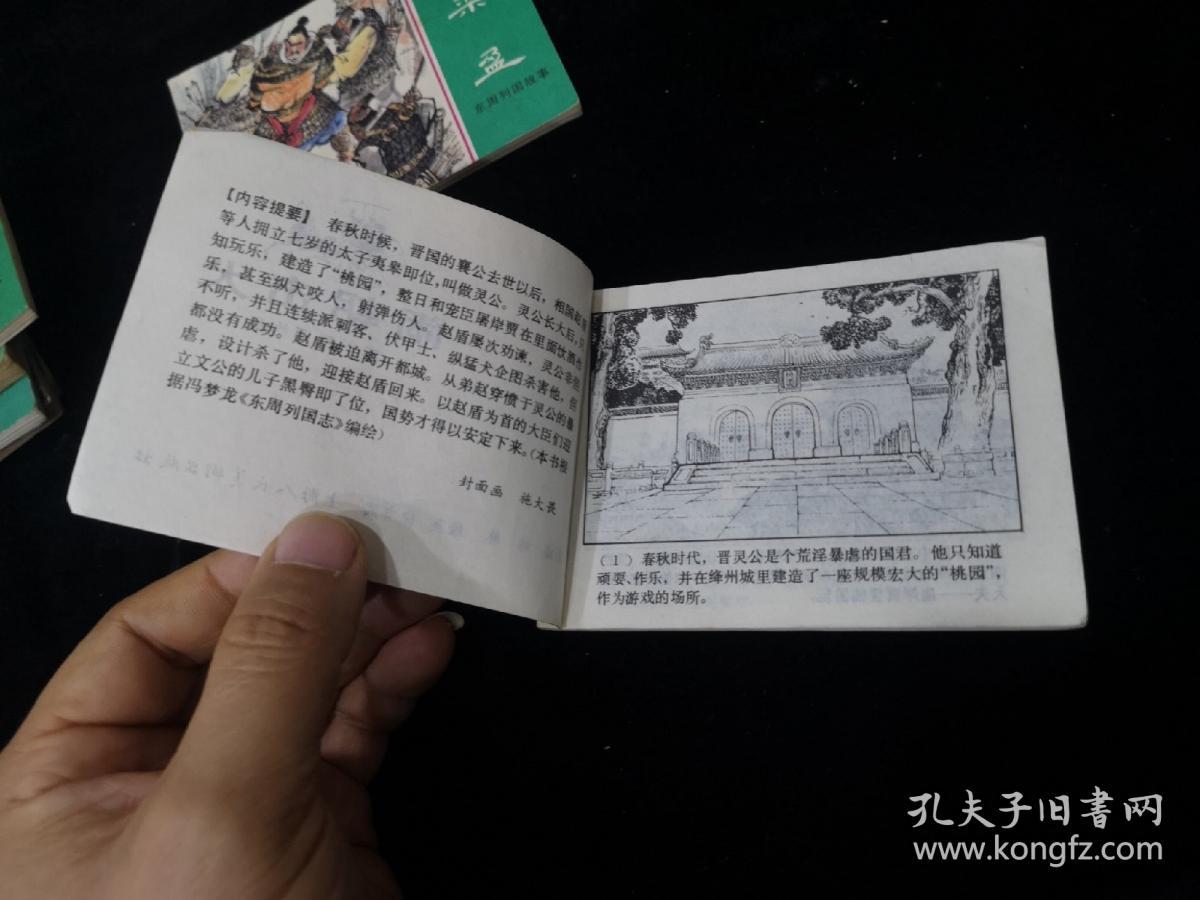 栾
盈
东周列国故事
【内容提要】 春秋时候，晋国的襄公去世以后，相国赵盾
等人拥立七岁的太子夷皋即位，叫做灵公。灵公长大后，只
知玩乐，建造了“桃园”，整日和宠臣屠岸贾在里面饮酒作
乐，甚至纵犬咬人，射弹伤人。赵盾屡次劝谏，灵公非但
不听，并且连续派刺客、伏甲士、纵猛犬企图杀害他，但
都没有成功。赵盾被迫离开都城。从弟赵穿愤于灵公的暴
虐，设计杀了他，迎接赵盾回来。以赵盾为首的大臣们迎
立文公的儿子黑臀即了位，国势才得以安定下来。（本书根
据冯梦龙《东周列国志》编绘）
封面画 施大畏
（1）春秋时代，晋灵公是个荒淫暴虐的国君。他只知道
顽耍、作乐，并在绛州城里建造了一座规模宏大的“桃园”，
作为游戏的场所。
孔夫子旧书网
www.kongfz.com